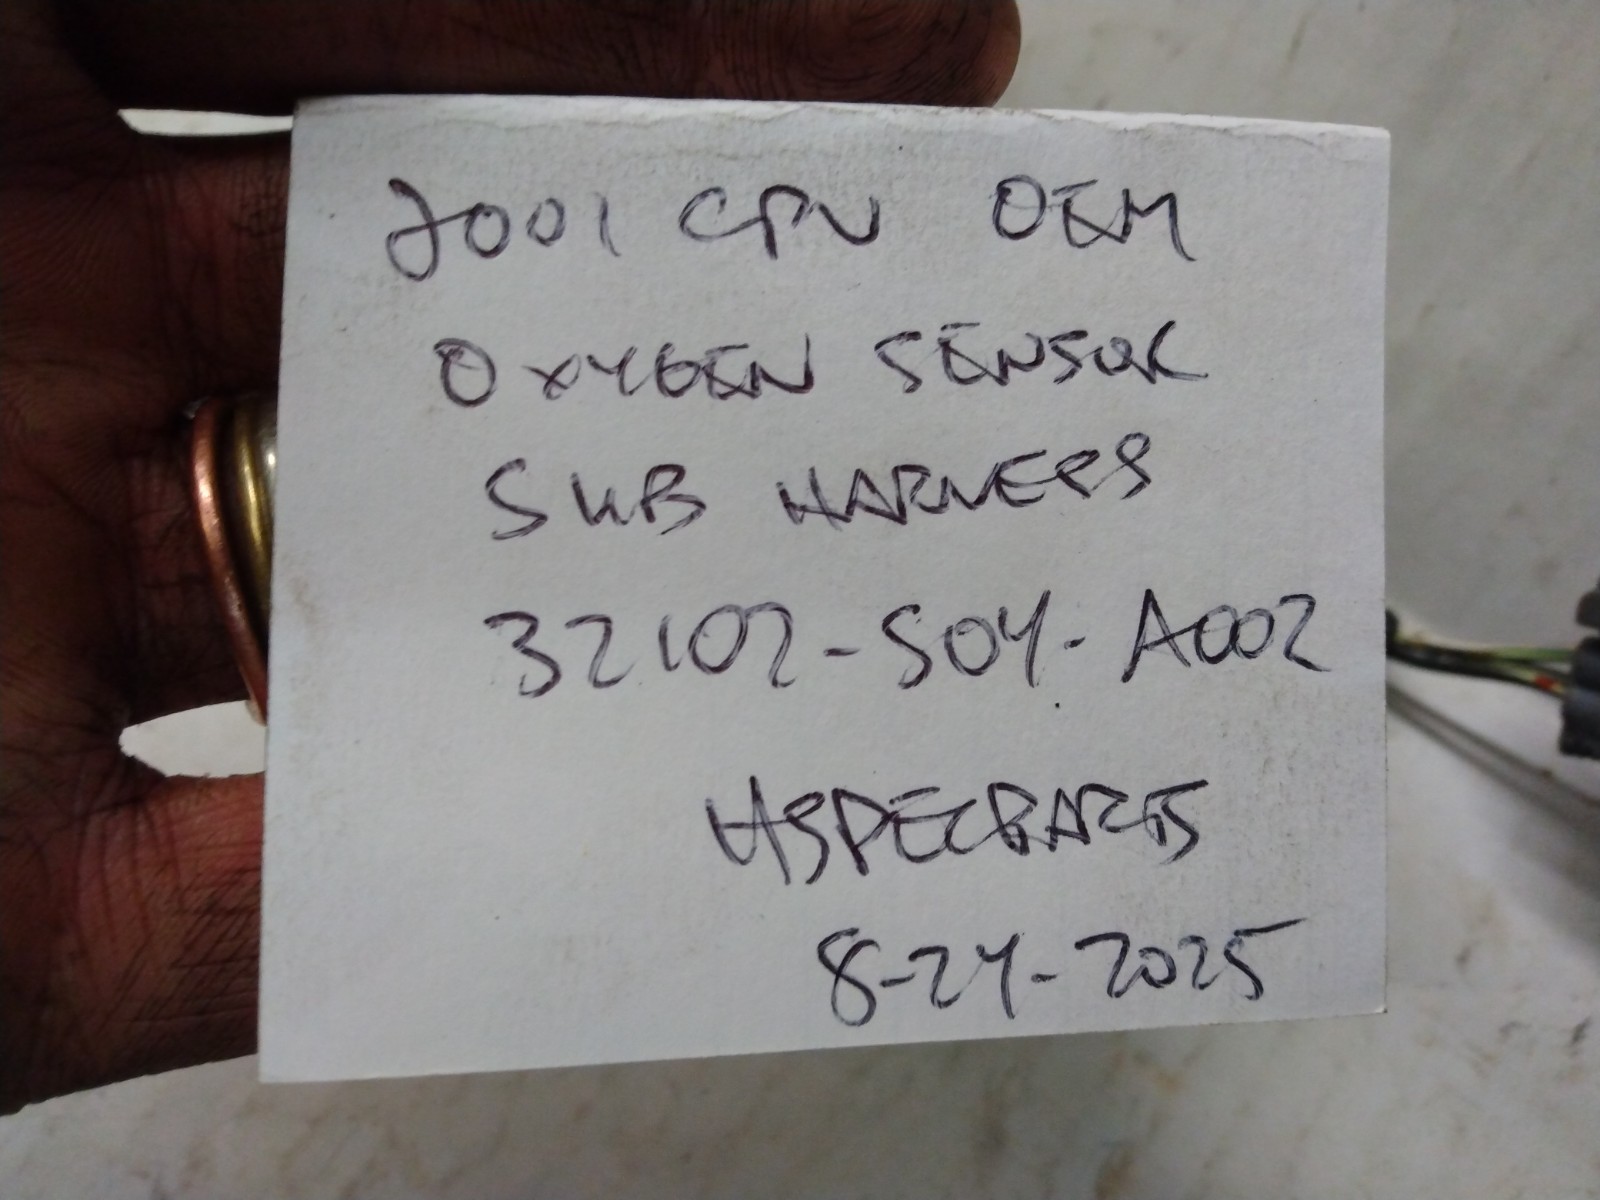 2001 CRV OEM
OXYGEN SENSOR
SUB HARNESS
32102-S04-A002
HSPECPARTS
8-24-2025